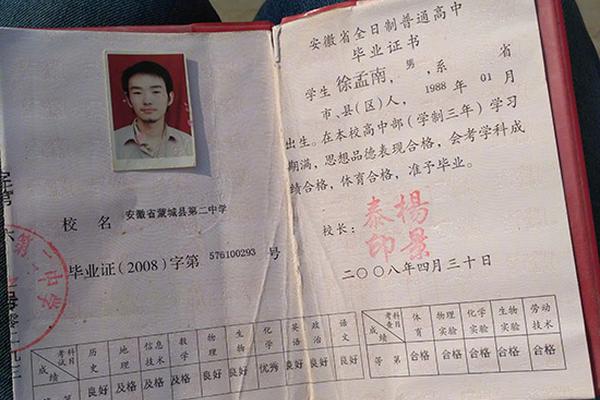 校 名 安徽省蒙城县第二中学
毕业证(2008)字第 576100293 号
第二中学
考试科目 成绩 历史 地理 信息技术 数学 物理 生物 化学 英语 政治 语文
良好 及格 及格 及格 良好 良好 优秀 良好 良好 良好
安徽省全日制普通高中
毕业证书
学生 徐孟南,男,系 省
市、县(区)人, 1988 年 01 月
出生。在本校高中部(学制三年)学习
期满,思想品德表现合格,会考学科成
绩合格,体育合格,准予毕业。
校长: 楊景泰印
二〇〇八年四月三十日
考查科目 成绩 体育 物理实验 化学实验 生物实验 劳动技术
等 第 合格 合格 合格 合格 合格